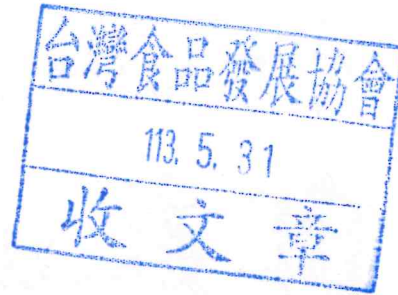 台灣食品發展協會
113. 5. 31
收文章